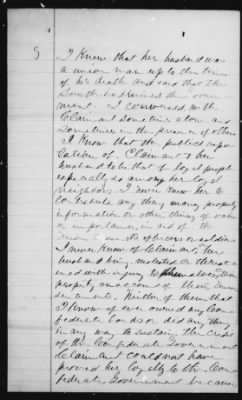 5
I Know that her husband was
a union man up to the time
of his death and said that the
South had ruined this
ment. I conversed with
Claimant sometimes alone and
sometimes in the presence of others
I know that the public repu
tation of Claimant & her
husband to be that of loyal people
especially so among her loyal
neighbors I never knew her to
contribute any thing money property
information or other thing of value
or importance, in aid of
officers or soldiers
I never knew of Claimant, her
husband being molested or threat
ened with injury to themselves
property on account of their Union
sentiments, Neither of them that
I know of ever owned any Con
federate bonds or did any thing
in any way to sustain the credit
of the Confederate Government
Claimant could not have
proved her loyalty to the Con
federate Government because